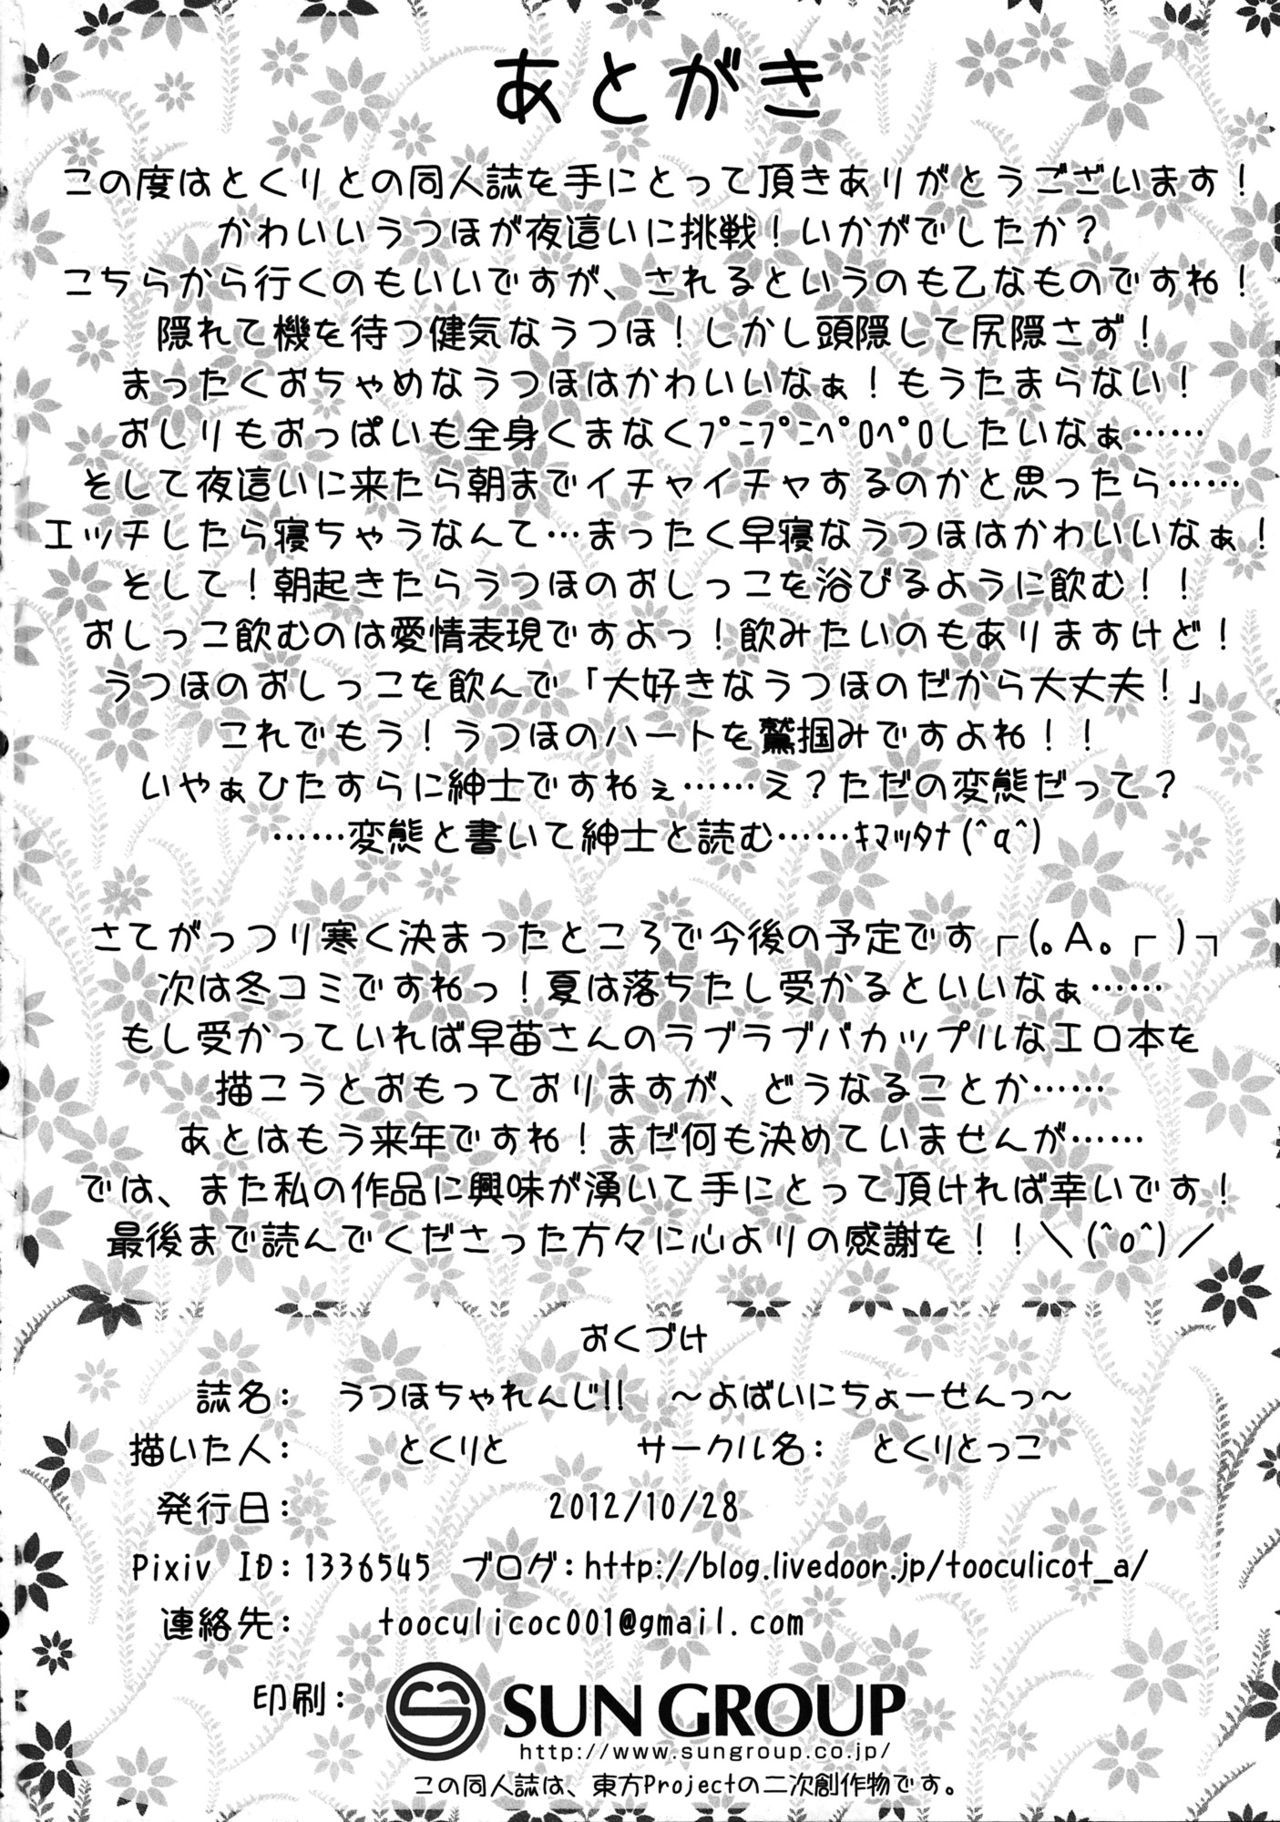 あとがき
この度はとくりとの同人誌を手にとって頂きありがとうございます！
かわいいうつほが夜這いに挑戦！いかがでしたか？
こちらから行くのもいいですが、されるというのも乙なものですね！
隠れて機を待つ健気なうつほ！しかし頭隠して尻隠さず！
まったくおちゃめなうつほはかわいいなぁ！もうたまらない！
おしりもおっぱいも全身くまなくﾌﾟﾆﾌﾟﾆﾍﾟﾛﾍﾟﾛしたいなぁ……
そして夜這いに来たら朝までイチャイチャするのかと思ったら……
エッチしたら寝ちゃうなんて…まったく早寝なうつほはかわいいなぁ！
そして！朝起きたらうつほのおしっこを浴びるように飲む！！
おしっこ飲むのは愛情表現ですよっ！飲みたいのもありますけど！
うつほのおしっこを飲んで「大好きなうつほのだから大丈夫！」
これでもう！うつほのハートを鷲掴みですよね！！
いやぁひたすらに紳士ですねぇ……え？ただの変態だって？
……変態と書いて紳士と読む……ｷﾏｯﾀﾅ(^q^)
さてがっつり寒く決まったところで今後の予定です┌(｡A｡┌ )┐
次は冬コミですねっ！夏は落ちたし受かるといいなぁ……
もし受かっていれば早苗さんのラブラブバカップルなエロ本を
描こうとおもっておりますが、どうなることか……
あとはもう来年ですね！まだ何も決めていませんが……
では、また私の作品に興味が湧いて手にとって頂ければ幸いです！
最後まで読んでくださった方々に心よりの感謝を！！＼(^o^)／
おくづけ
誌名： うつほちゃれんじ!! ～よばいにちょーせんっ～
描いた人： とくりと サークル名： とくりとっこ
発行日： 2012/10/28
Pixiv ID：1336545 ブログ：http://blog.livedoor.jp/tooculicot_a/
連絡先： tooculicoc001@gmail.com
印刷： SUN GROUP
http://www.sungroup.co.jp/
この同人誌は、東方Projectの二次創作物です。